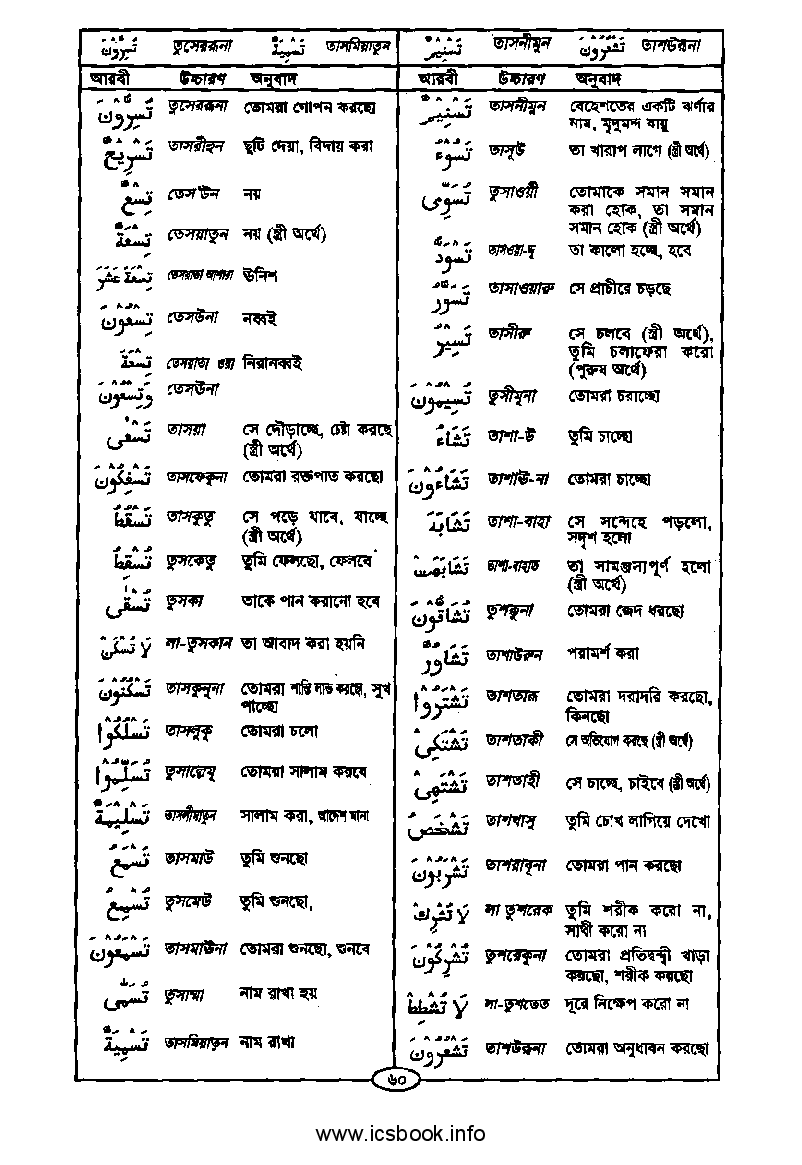 تُسِرُّوْنَ তুসেররূনা تَسْمِيَةٌ তাসমিয়াতুন
আরবী উচ্চারণ অনুবাদ
تُسِرُّوْنَ তুসেররূনা তোমরা গোপন করছো
تَسْرِيْحٌ তাসরীহুন ছুটি দেয়া, বিদায় করা
تِسْعٌ তেসউন নয়
تِسْعَةٌ তেসয়াতুন নয় (স্ত্রী অর্থে)
تِسْعَةَ عَشَرَ তেসয়াতা আশারা উনিশ
تِسْعُوْنَ তেসউনা নব্বই
تِسْعَةٌ তেসয়াতা ওয়া নিরানব্বই
وَتِسْعُوْنَ তেসউনা
تَسْعٰى তাসয়া সে দৌড়াচ্ছে, চেষ্টা করছে
(স্ত্রী অর্থে)
تَسْفِكُوْنَ তাসফেকুনা তোমরা রক্তপাত করছো
تَسْقُطُ তাসকুতু সে পড়ে যাবে, যাচ্ছে
(স্ত্রী অর্থে)
تُسْقِطُ তুসকেতু তুমি ফেলছো, ফেলবে
تُسْقٰى তুসকা তাকে পান করানো হবে
لَا تُسْكَنْ লা-তুসকান তা আবাদ করা হয়নি
تَسْكُنُوْنَ তাসকুনূনা তোমরা শান্তি লাভ করছে, সুখ
পাচ্ছো
تَسْلُكُوْا তাসলুকূ তোমরা চলো
تُسَلِّمُوْا তুসাল্লেমূ তোমরা সালাম করবে
تَسْلِيْمَةٌ তাসলীমাতুন সালাম করা, আদেশ মানা
تَسْمَعُ তাসমাউ তুমি শুনছো
تُسْمِعُ তুসমেউ তুমি শুনছো,
تَسْمَعُوْنَ তাসমাউনা তোমরা শুনছো, শুনবে
تُسَمّٰى তুসাম্মা নাম রাখা হয়
تَسْمِيَةٌ তাসমিয়াতুন নাম রাখা
تَسْنِيْمٌ তাসনীমুন تَشْعُرُوْنَ তাশউরূনা
আরবী উচ্চারণ অনুবাদ
تَسْنِيْمٌ তাসনীমুন বেহেশতের একটি ঝর্ণার
নাম, মৃদুমন্দ বায়ু
تَسُوْءُ তাসূউ তা খারাপ লাগে (স্ত্রী অর্থে)
تُسَوّٰى তুসাওয়ী তোমাকে সমান সমান
করা হোক, তা সমান
সমান হোক (স্ত্রী অর্থে)
تَسْوَدُّ তাসওয়া-দ্দু তা কালো হচ্ছে, হবে
تَسَوَّرُ তাসাওয়ারু সে প্রাচীরে চড়ছে
تَسِيْرُ তাসীরু সে চলবে (স্ত্রী অর্থে),
তুমি চলাফেরা করো
(পুরুষ অর্থে)
تُسِيْمُوْنَ তুসীমূনা তোমরা চরাচ্ছো
تَشَاءُ তাশা-উ তুমি চাচ্ছো
تَشَاءُوْنَ তাশাউ-না তোমরা চাচ্ছো
تَشَابَهَ তাশা-বাহা সে সন্দেহে পড়লো,
সদৃশ হলো
تَشَابَهَتْ তাশা-বাহাত তা সামঞ্জস্যপূর্ণ হলো
(স্ত্রী অর্থে)
تُشَاقُّوْنَ তুশাক্কুনা তোমরা জেদ ধরছো
تَشَاوُرٌ তাশাউরুন পরামর্শ করা
تَشْتَرُوْا তাশতারূ তোমরা দরাদরি করছো,
কিনছো
تَشْتَكِىْ তাশতাকী সে অভিযোগ করছে (স্ত্রী অর্থে)
تَشْتَهِىْ তাশতাহী সে চাচ্ছে, চাইবে (স্ত্রী অর্থে)
تَشْخَصُ তাশখাসু তুমি চোখ লাগিয়ে দেখো
تَشْرَبُوْنَ তাশরাবূনা তোমরা পান করছো
لَا تُشْرِكْ লা তুশরেক তুমি শরীক করো না,
সাথী করো না
تُشْرِكُوْنَ তুশরেকুনা তোমরা প্রতিদ্বন্দ্বী খাড়া
করছো, শরীক করছো
لَا تُشْطِطْ লা-তুশতেত দূরে নিক্ষেপ করো না
تَشْعُرُوْنَ তাশউরূনা তোমরা অনুধাবন করছো
৬০
www.icsbook.info